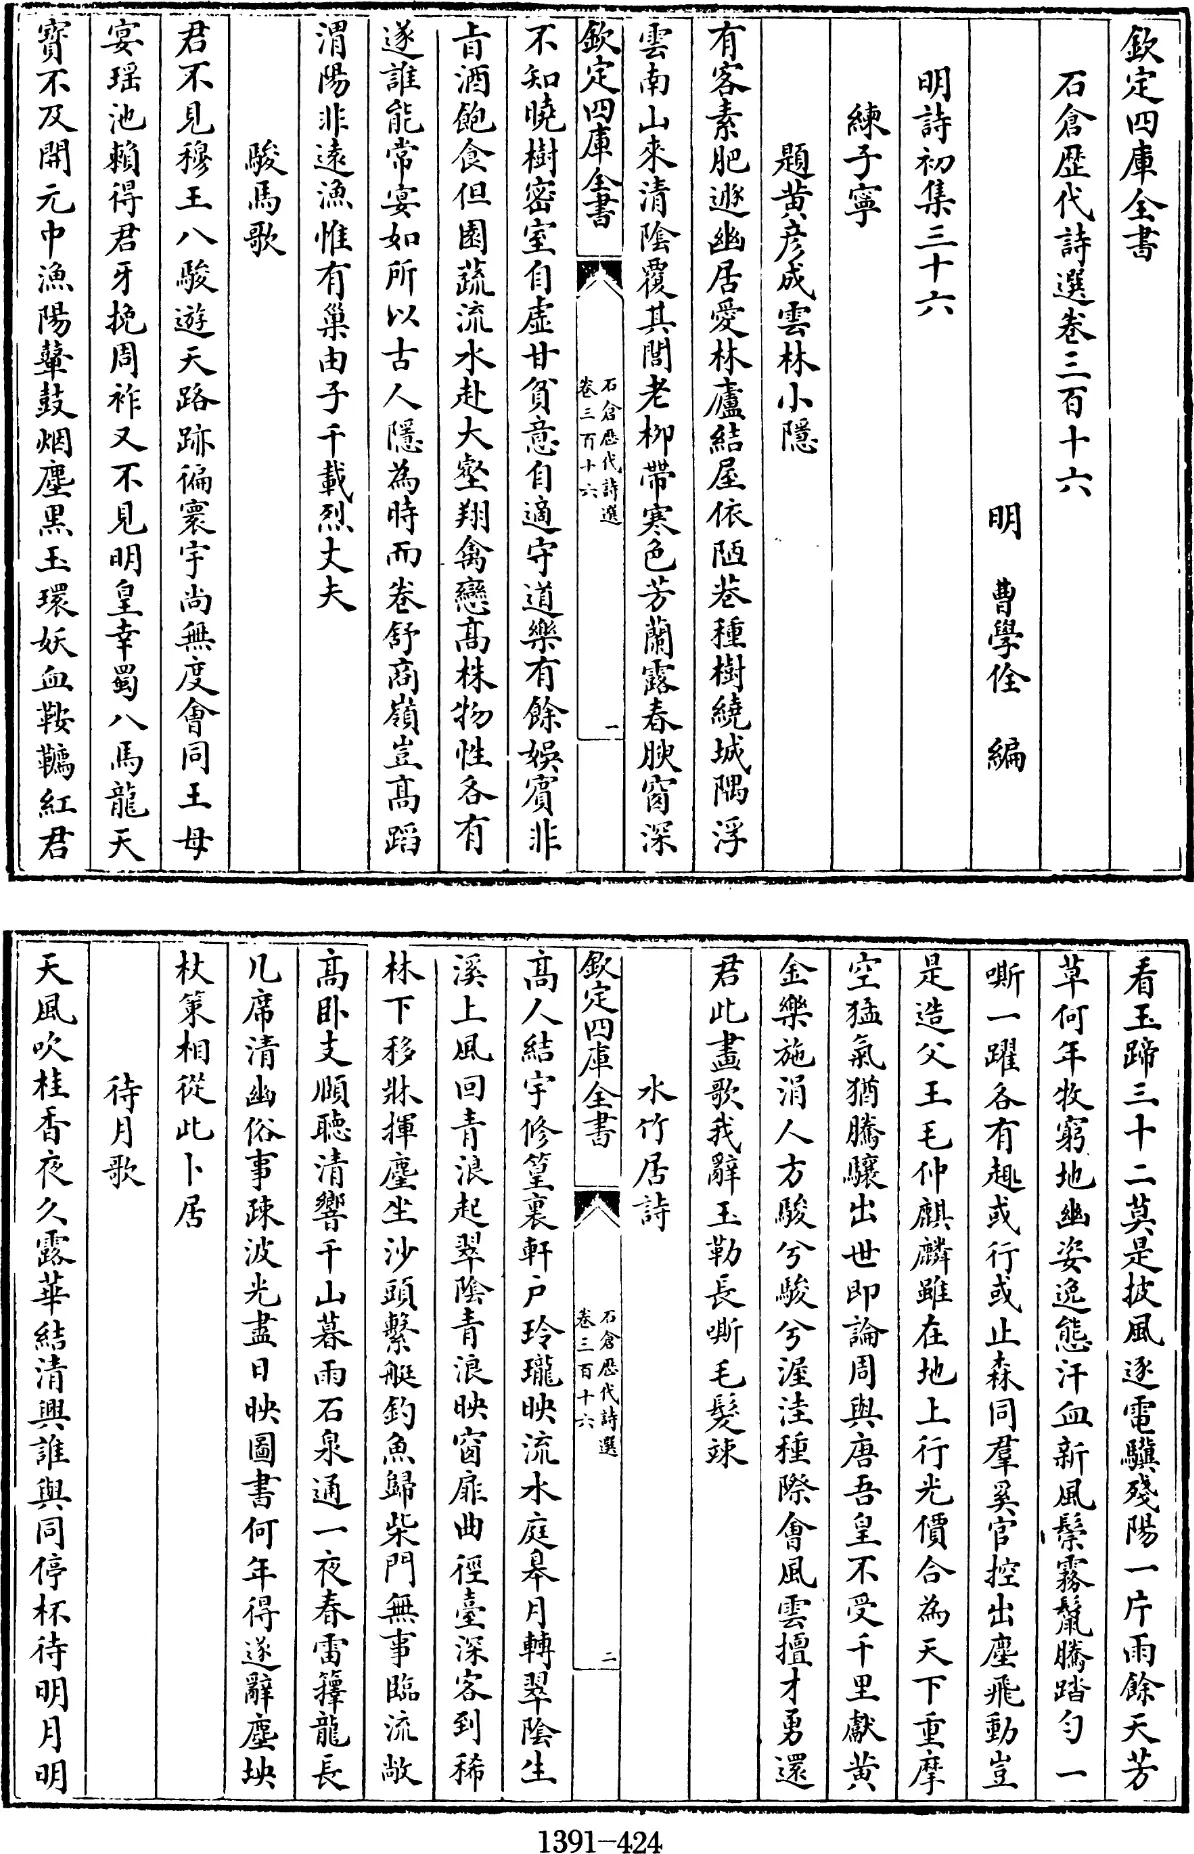 欽定四庫全書
石倉歴代詩選卷三百十六
明 曹學佺 編
明詩初集三十六
練子寧
題黄彦成雲林小隱
有客素肥遯幽居愛林廬結屋依陋巷種樹繞城隅浮
雲南山來清陰覆其閭老柳帶寒色芳蘭露春腴窗深
欽定四庫全書
石倉歴代詩選
卷三百十六
一
不知曉樹密室自虛甘貧意自適守道樂有餘娯賓非
㫖酒飽食但園蔬流水赴大壑翔禽戀髙株物性各有
遂誰能常宴如所以古人隱為時而卷舒商嶺豈髙蹈
渭陽非遠漁惟有巢由子千載烈丈夫
駿馬歌
君不見穆王八駿遊天路跡徧寰宇尚無度會同王母
宴瑶池賴得君牙挽周祚又不見明皇幸蜀八馬龍天
寶不及開元中漁陽鼙鼓烟塵黒玉環妖血鞍韉紅君
看玉蹄三十二莫是披風逐電驥殘陽一片雨餘天芳
草何年牧窮地幽姿逸態汗血新風鬃霧鬛騰踏勻一
嘶一躍各有趣或行或止森同羣奚官控出塵飛動豈
是造父王毛仲麒麟雖在地上行光價合為天下重摩
空猛氣猶騰驤出世即論周與唐吾皇不受千里獻黄
金樂施涓人方駿兮駿兮渥洼種際會風雲擅才勇還
君此畫歌我辭玉勒長嘶毛髮竦
水竹居詩
欽定四庫全書
石倉歴代詩選
卷三百十六
二
髙人結宇修篁裏軒户玲瓏映流水庭皋月轉翠陰生
溪上風回青浪起翠陰青浪映窗扉曲徑臺深客到稀
林下移牀揮麈坐沙頭繫艇釣魚歸柴門無事臨流敞
髙卧支頤聽清響千山暮雨石泉通一夜春雷籜龍長
几席清幽俗事疎波光盡日映圖書何年得遂辭塵坱
杖策相從此卜居
待月歌
天風吹桂香夜久露華結清興誰與同停杯待明月明
1391-424